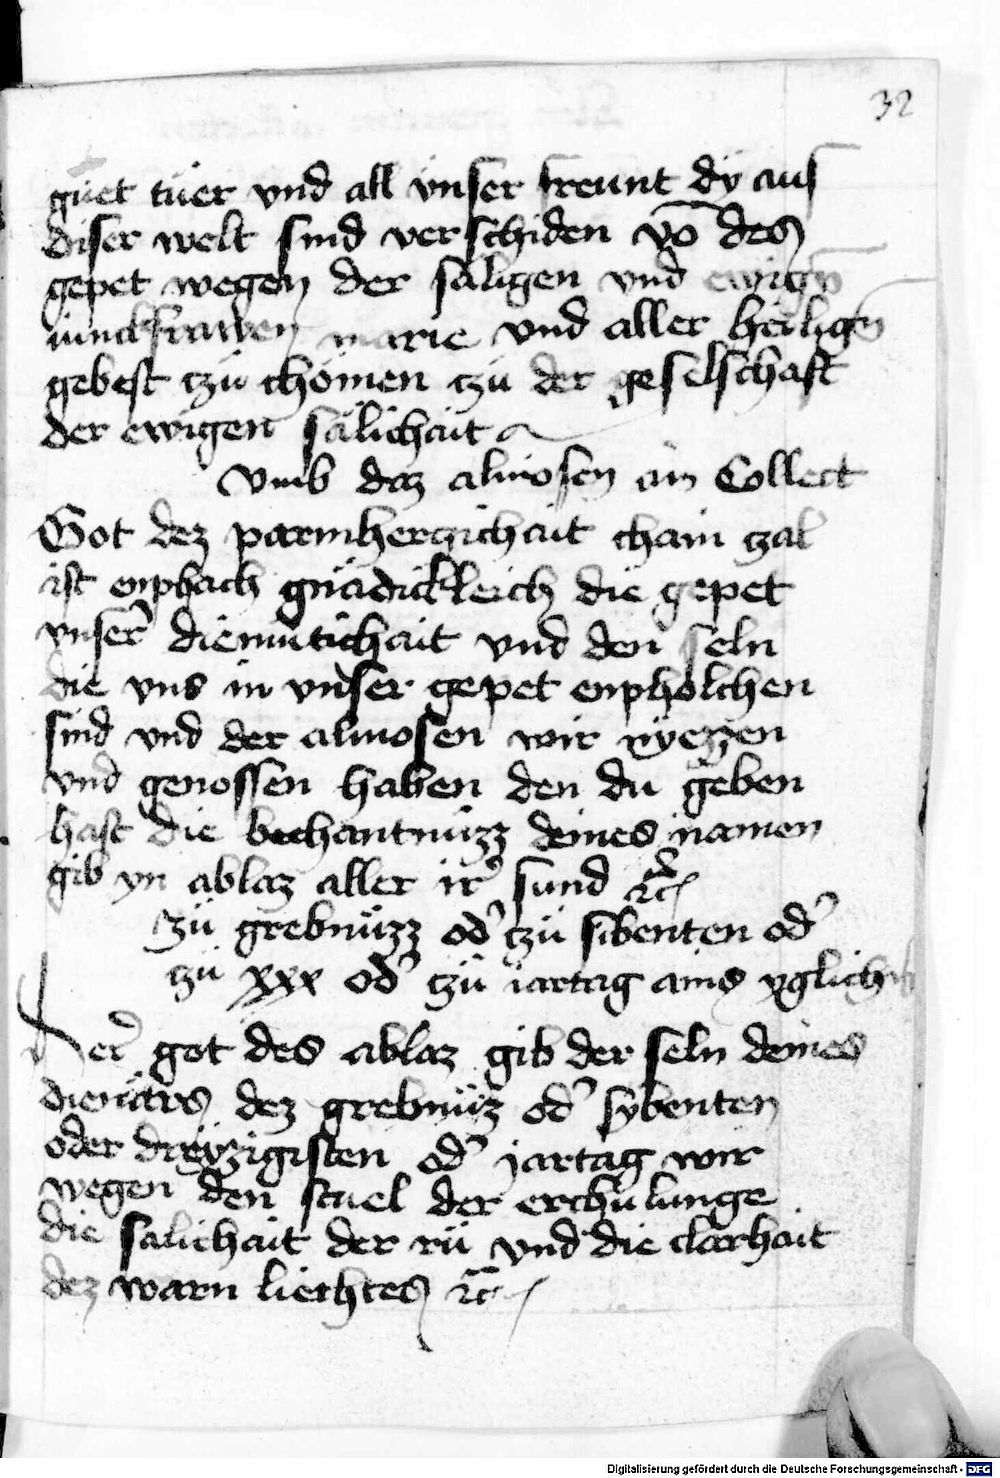 32
guet tüer vnd all vnser freunt dÿ aus
diser welt sind verschiden vō des
gepet wegen der säligen vnd ewign̄
iunckfrawen marie vnd aller heilign̄
gebest tzü chömen tzu der geselschaft
der ewigen sälichait
Vmb daz almosen ain Collect
Got dez parmherczichait chain zal
ist enphach gnädickleich die gepet
vnser̾ diemütichait vnd den seln
die vns in vnser gepet enpholchen
sind vnd der almosen wir nyezzen
vnd genossen haben den du geben
hast die bechantnüzz deines namen
gib yn ablaz aller ir̾ sund ꝛc̄
Zü grebnüzz od̾ tzü sibenten od̾
tzü xxx od̾ tzü iartag ains
Her̾ got des ablaz gib der seln deines
dienärs dez grebnüz od̾ sybenten
oder dreÿzigisten od̾ jartag wir
wegen den stuel der erchulunge
die salichait der rü vnd die clarhait
dez warn liechtes ꝛc̄
Digitalisierung gefördert durch die Deutsche Forschungsgemeinschaft - DFG